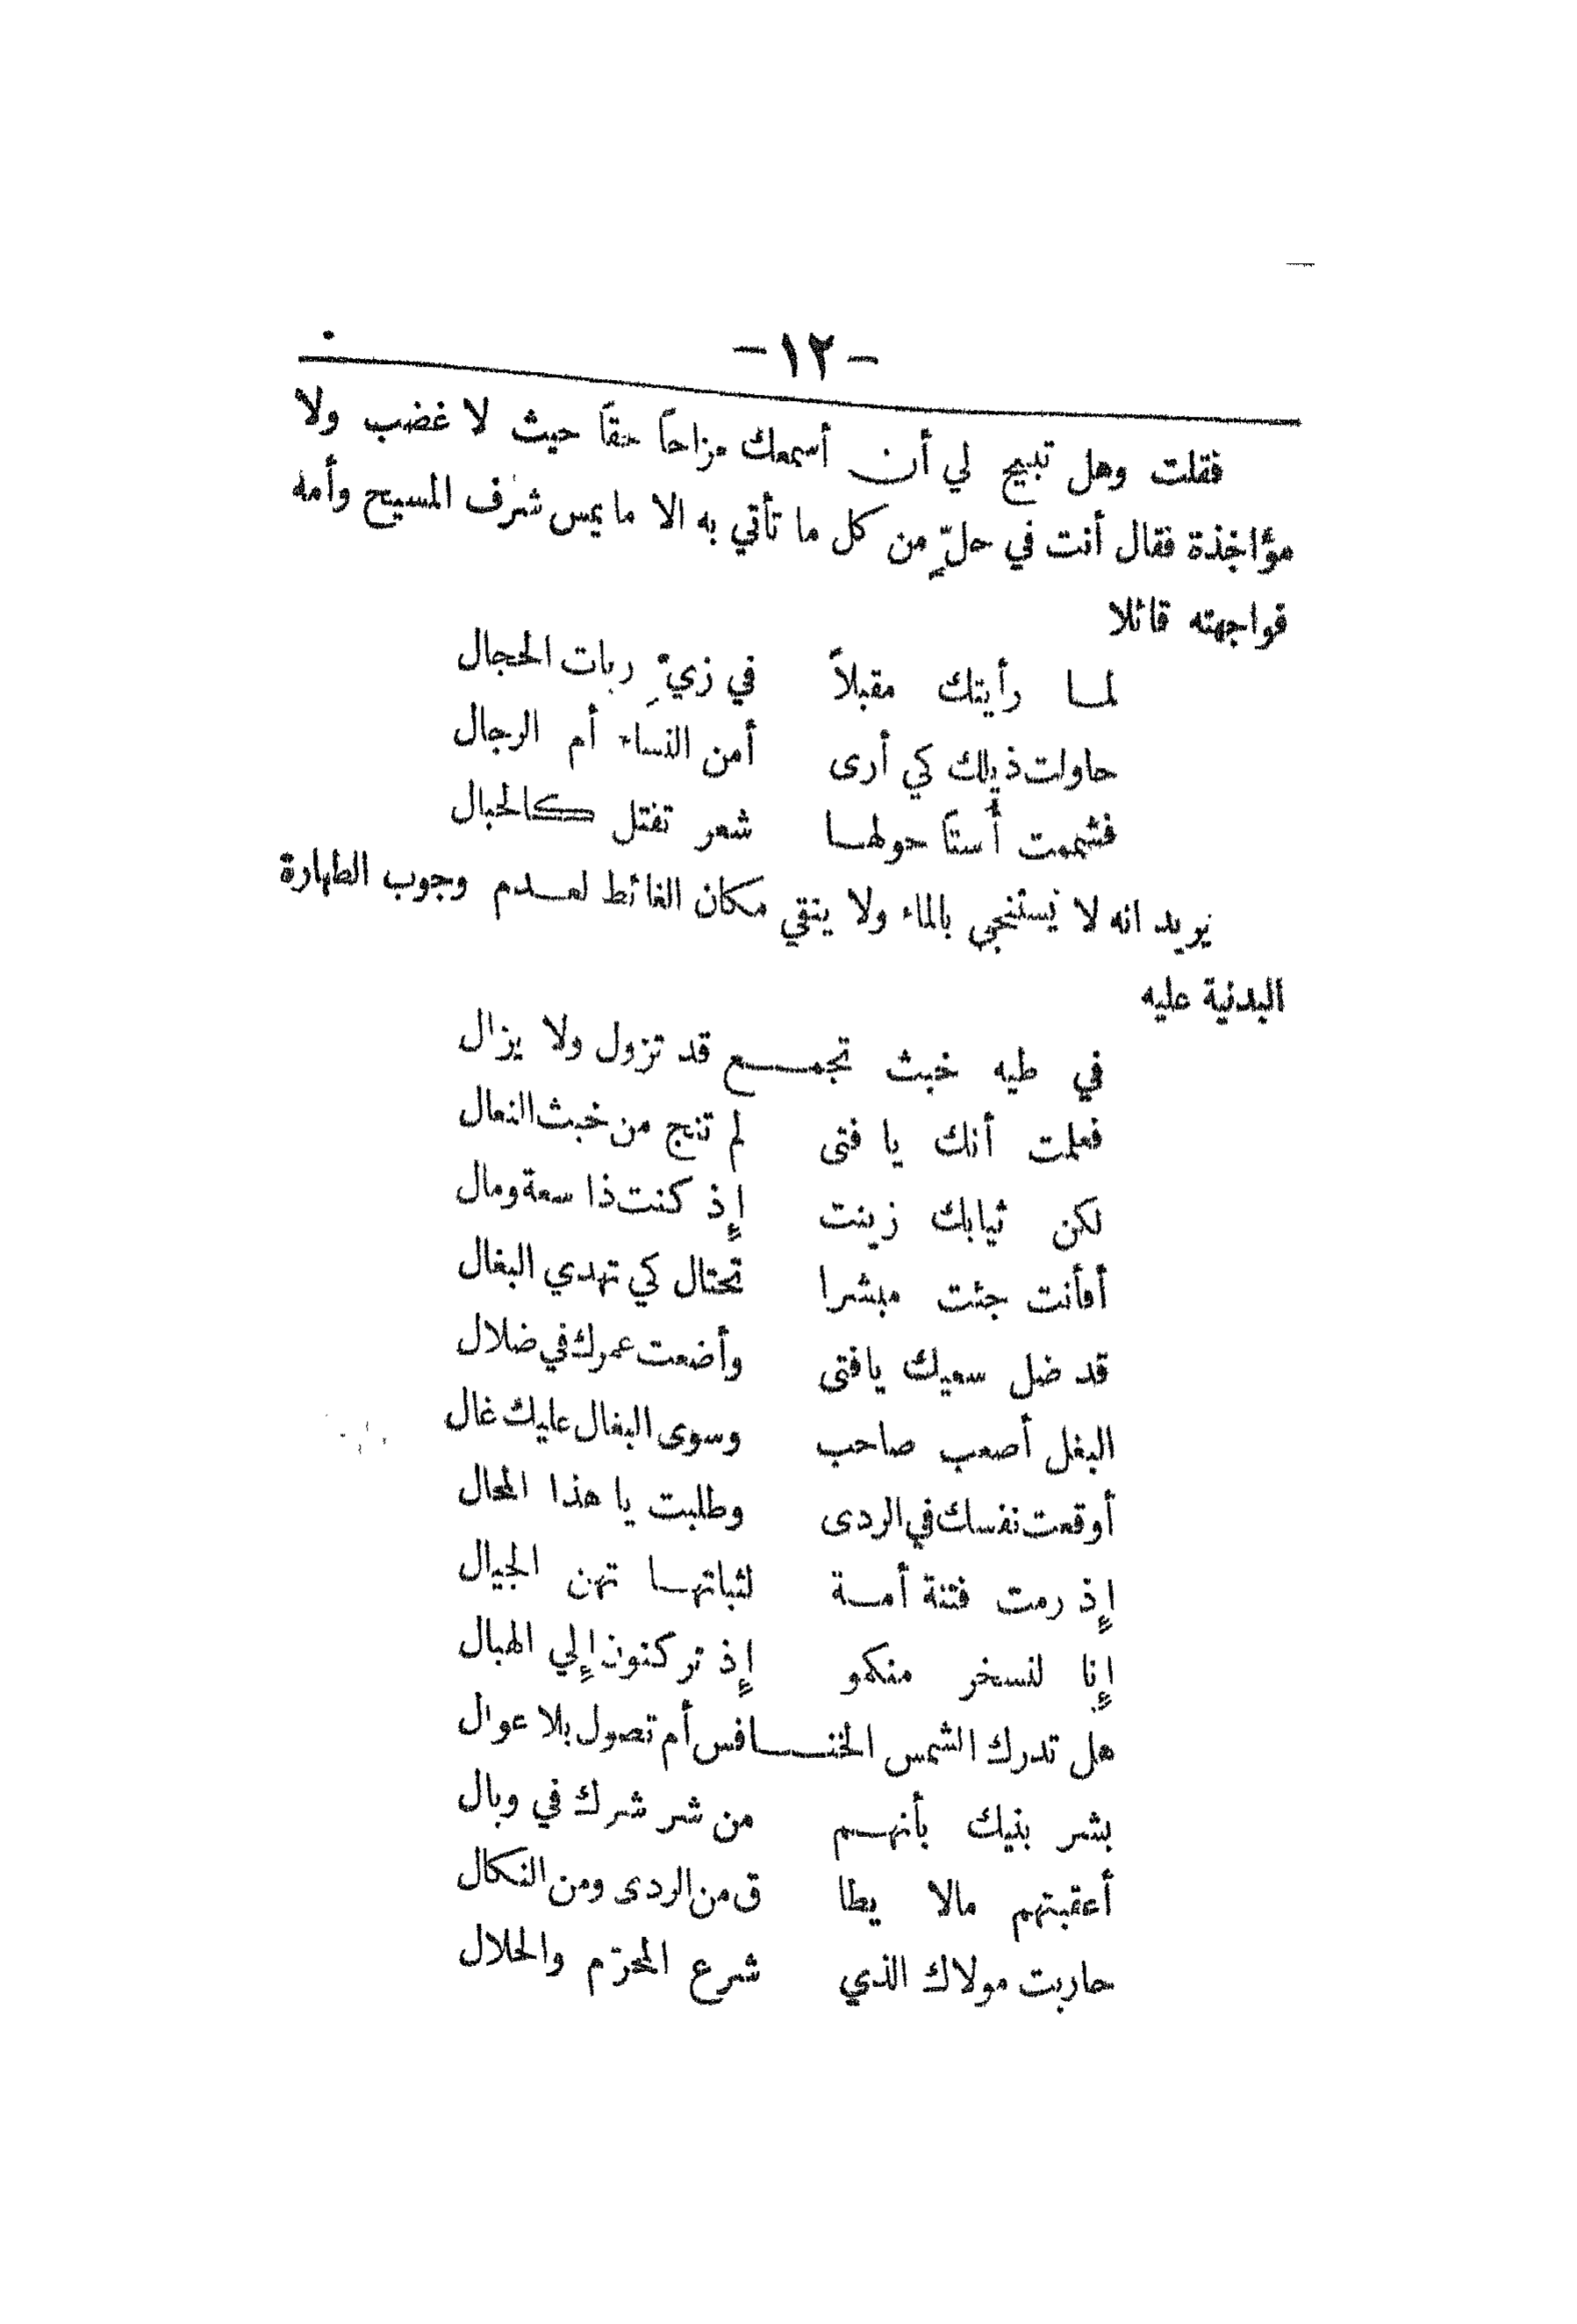 - ١٢ -
فقلت وهل تبيح لي أن أسمعك مزاحاً حقاً حيث لا غضب ولا
مؤاخذة فقال أنت في حلٍّ من كل ما تأتي به الا ما يمس شرف المسيح وأمه
فواجهته قائلا
لما رأيتك مقبلاً في زيِّ ربات الحجال
حاولت ذيلك كي أرى أمن النساء أم الرجال
فشممت أستاً حولها شعر تفتل كالحبال
يريد انه لا يستنجي بالماء ولا ينقي مكان الغائط لعدم وجوب الطهارة
البدنية عليه
في طيه خبث تجمع قد تزول ولا يزال
فعلمت أنك يا فتى لم تنج من خبث النعال
لكن ثيابك زينت إذ كنت ذا سعة ومال
أفأنت جئت مبشرا تحتال كي تهدي البغال
قد ضل سعيك يا فتى وأضعت عمرك في ضلال
البغل أصعب صاحب وسوى البغال عليك غال
أوقعت نفسك في الردى وطلبت يا هذا المحال
إذ رمت فتنة أمة لثباتها تهن الجبال
إنا لنسخر منكمو إذ تركنون إلي الهبال
هل تدرك الشمس الخنافس أم تصول بلا عوال
بشر بنيك بأنهم من شر شرك في وبال
أعقبتهم مالا يطا ق من الردى ومن النكال
حاربت مولاك الذي شرع المحرّم والحلال